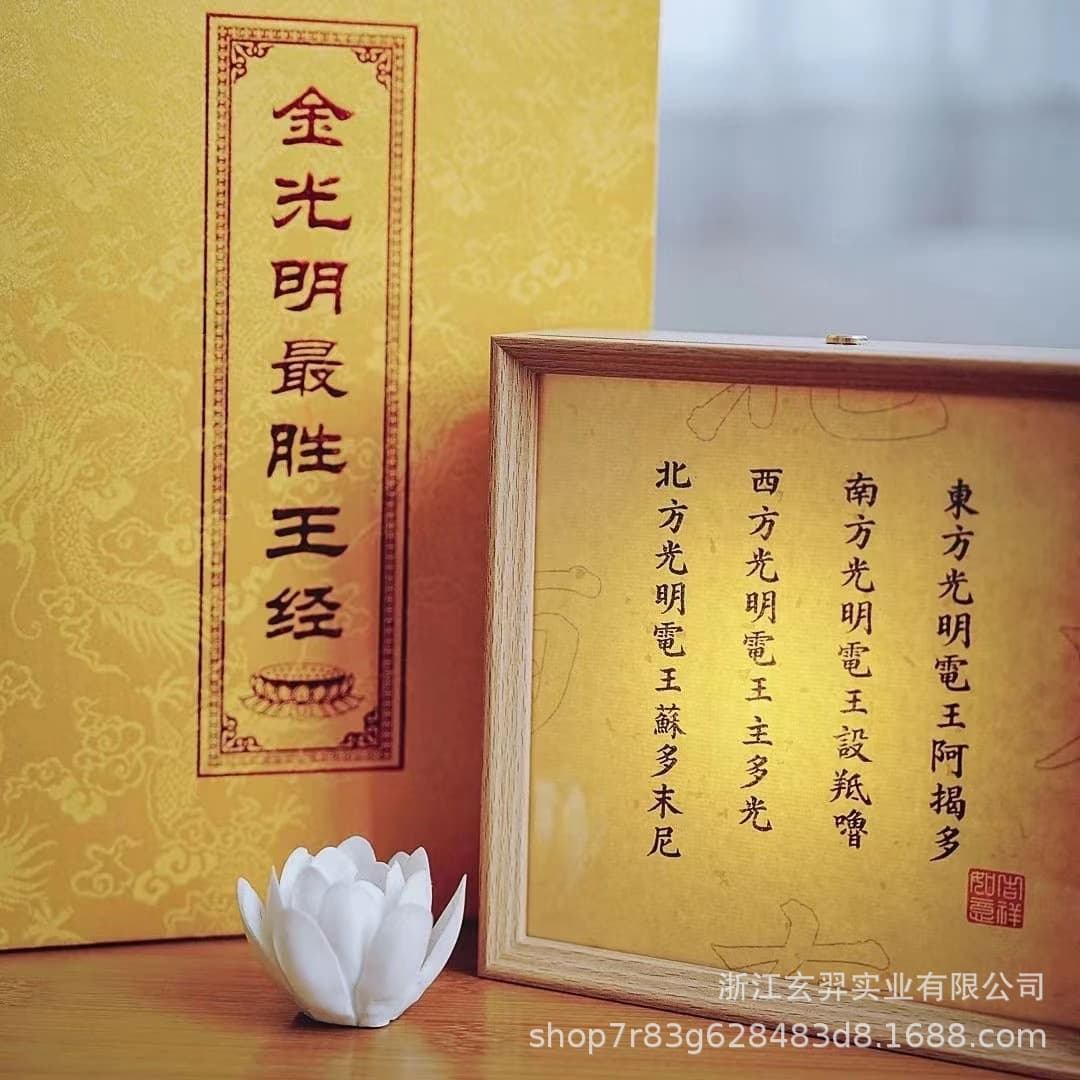 金光明最胜王经
東方光明電王阿揭多
南方光明電王設羝嚕
西方光明電王主多光
北方光明電王蘇多末尼
吉祥
如意
浙江玄羿实业有限公司
shop7r83g628483d8.1688.com